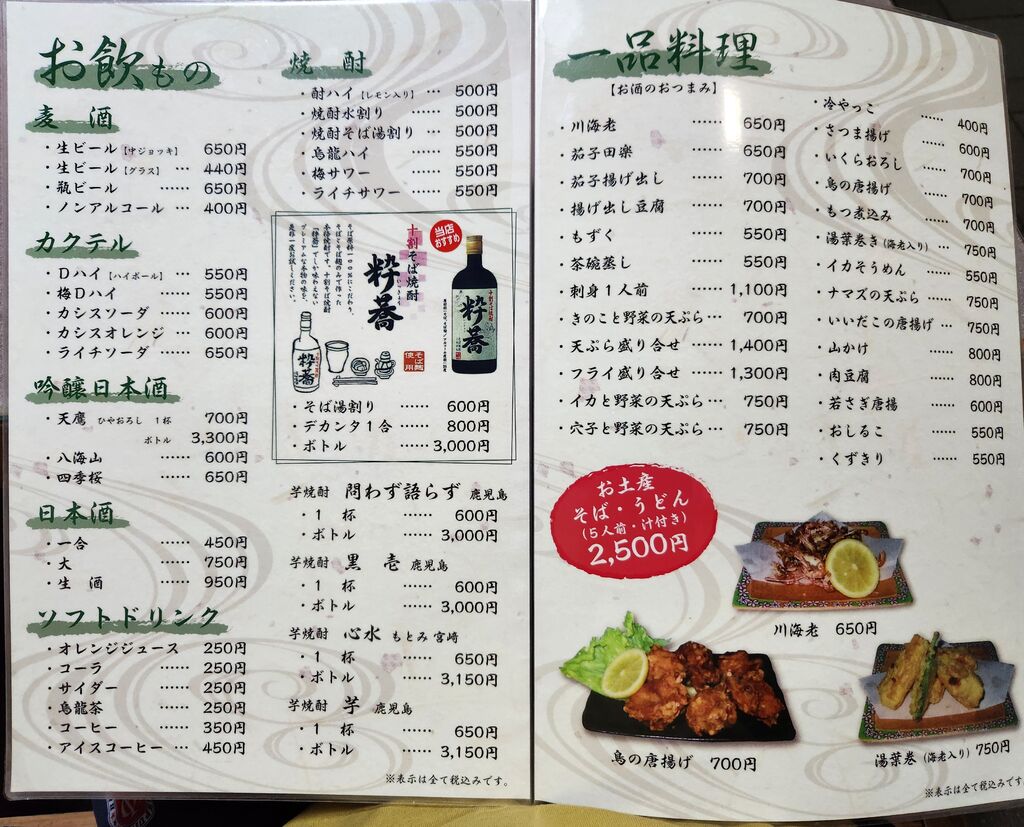 お飲もの
麦酒
・生ビール【中ジョッキ】 650円
・生ビール【グラス】 … 440円
・瓶ビール …… 650円
・ノンアルコール … 400円
カクテル
・Dハイ【ハイボール】 … 550円
・梅Dハイ …… 550円
・カシスソーダ …… 600円
・カシスオレンジ …… 600円
・ライチソーダ …… 650円
吟醸日本酒
・天鷹 ひやおろし 1杯 700円
ボトル 3,300円
・八海山 …… 600円
・四季桜 …… 650円
日本酒
・一合 …… 450円
・大 …… 750円
・生酒 …… 950円
ソフトドリンク
・オレンジジュース 250円
・コーラ …… 250円
・サイダー …… 250円
・烏龍茶 …… 250円
・コーヒー …… 350円
・アイスコーヒー … 450円
焼酎
・酎ハイ【レモン入り】 … 500円
・焼酎水割り …… 500円
・焼酎そば湯割り … 500円
・烏龍ハイ …… 550円
・梅サワー …… 550円
・ライチサワー …… 550円
当店
おすすめ
十割そば焼酎
粋蕎
そば原料100%にこだわり、
そばとそば麹のみで作った
本格焼酎です。十割そば焼酎
「粋蕎」でしか味わえない
プレミアムな本物の味を、
是非一度お試しください。
粋蕎
粋蕎
そば麹
使用
・そば湯割り …… 600円
・デカンタ1合 …… 800円
・ボトル …… 3,000円
芋焼酎 問わず語らず 鹿児島
・1杯 …… 600円
・ボトル …… 3,000円
芋焼酎 黒壱 鹿児島
・1杯 …… 600円
・ボトル …… 3,000円
芋焼酎 心水 もとみ 宮崎
・1杯 …… 650円
・ボトル …… 3,150円
芋焼酎 芋 鹿児島
・1杯 …… 650円
・ボトル …… 3,150円
※表示は全て税込みです。
一品料理
【お酒のおつまみ】
・川海老 …… 650円
・茄子田楽 …… 650円
・茄子揚げ出し …… 700円
・揚げ出し豆腐 …… 700円
・もずく …… 550円
・茶碗蒸し …… 550円
・刺身1人前 …… 1,100円
・きのこと野菜の天ぷら … 700円
・天ぷら盛り合せ … 1,400円
・フライ盛り合せ … 1,300円
・イカと野菜の天ぷら … 750円
・穴子と野菜の天ぷら … 750円
・冷やっこ …… 400円
・さつま揚げ …… 600円
・いくらおろし …… 700円
・鳥の唐揚げ …… 700円
・もつ煮込み …… 700円
・湯葉巻き(海老入り) … 750円
・イカそうめん …… 550円
・ナマズの天ぷら … 750円
・いいだこの唐揚げ … 700円
・山かけ …… 800円
・肉豆腐 …… 800円
・若さぎ唐揚 …… 600円
・おしるこ …… 550円
・くずきり …… 550円
お土産
そば・うどん
(5人前・汁付き)
2,500円
川海老 650円
鳥の唐揚げ 700円
湯葉巻(海老入り) 750円
※表示は全て税込みです。